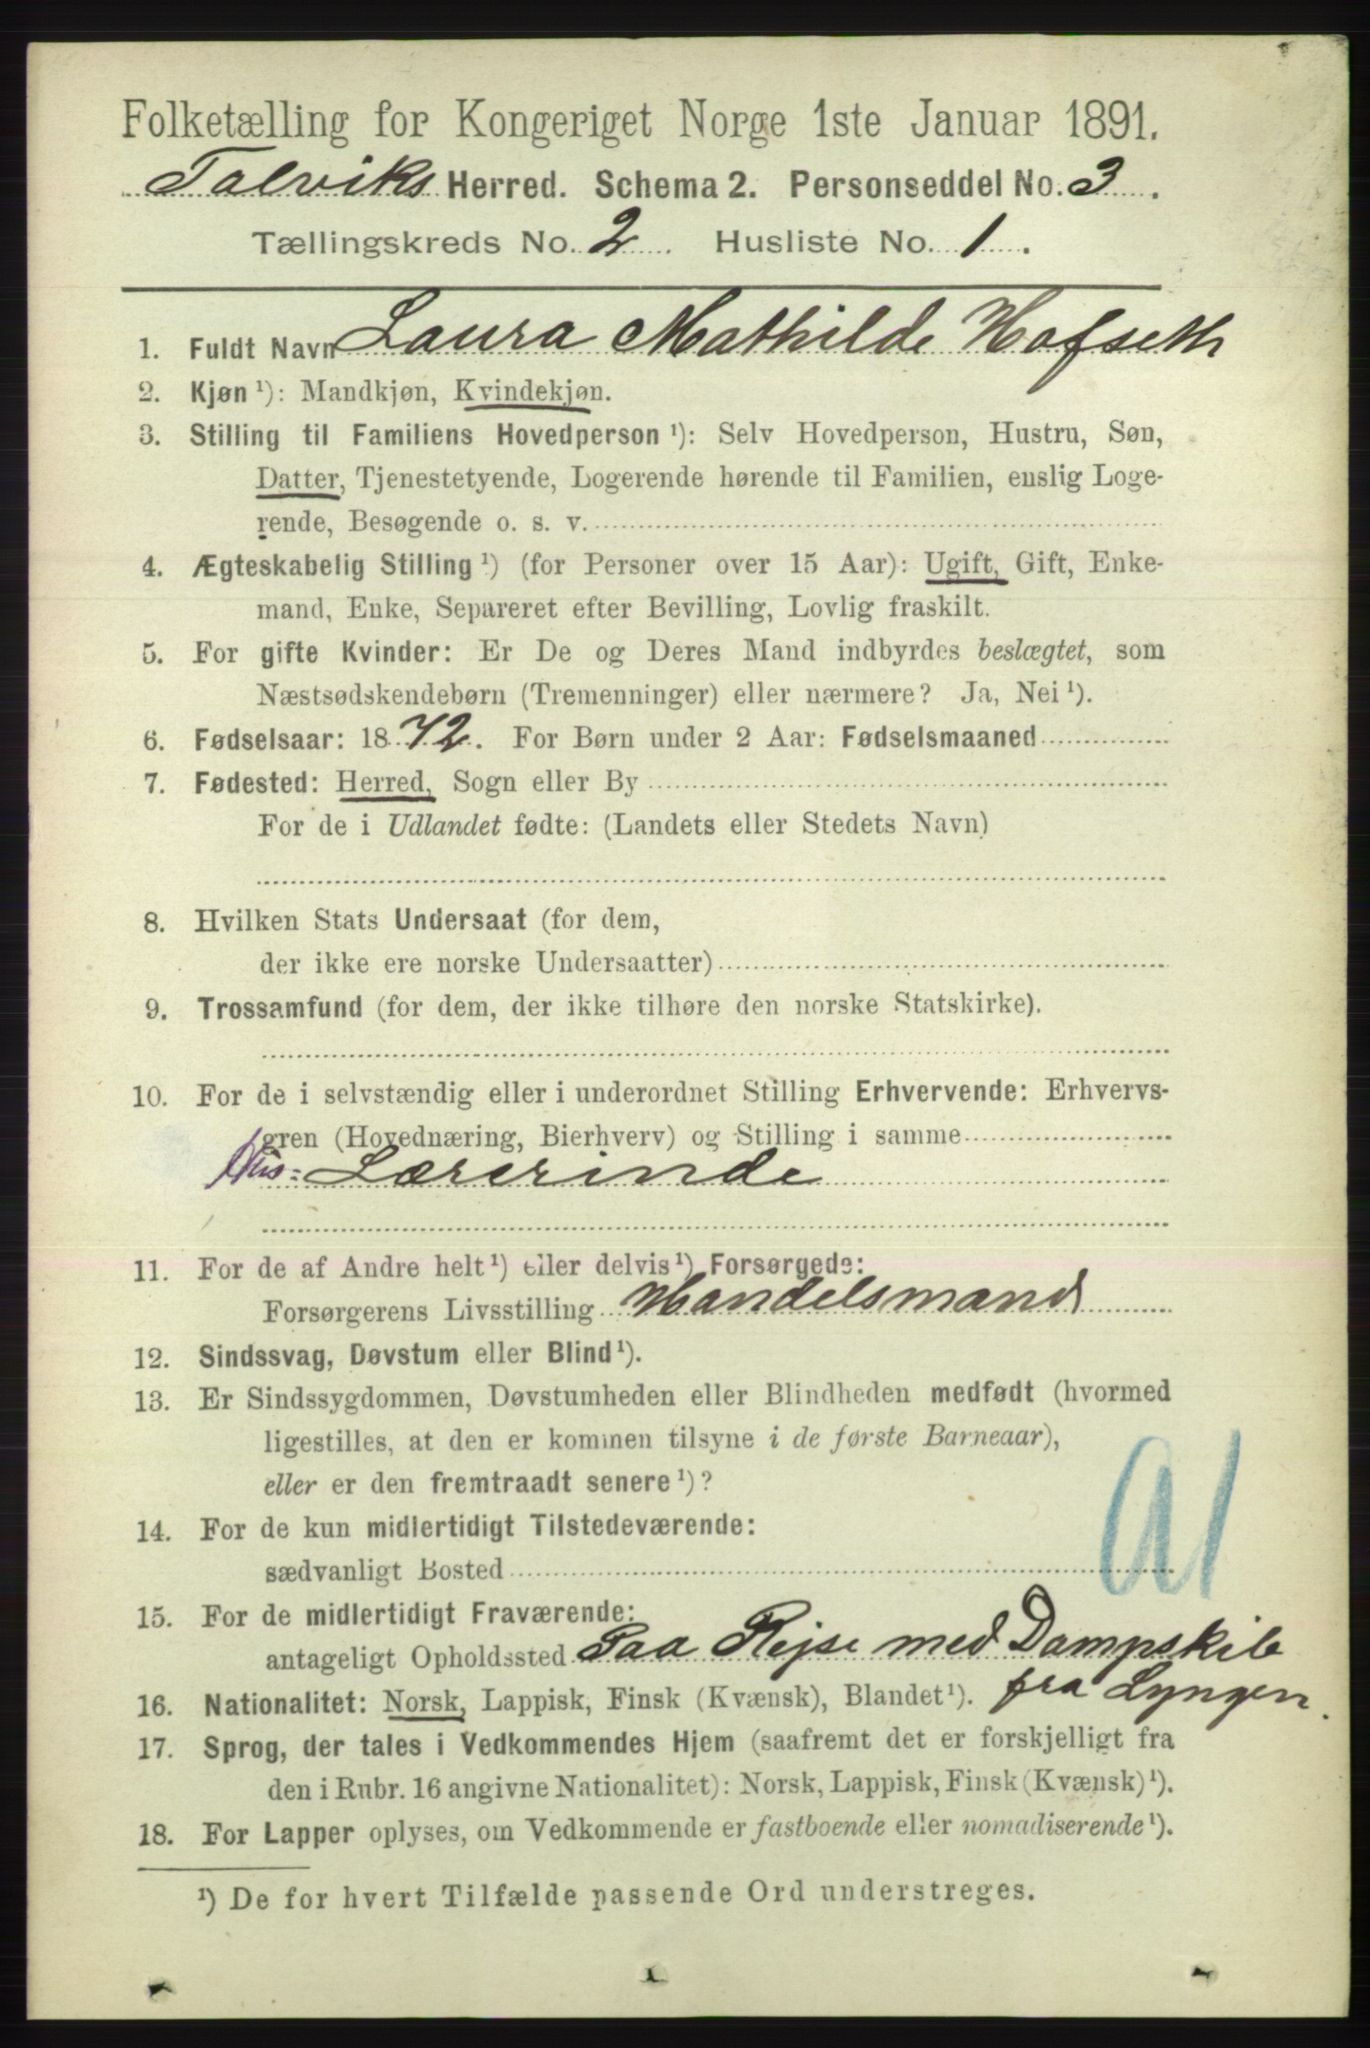 Folketælling for Kongeriget Norge 1ste Januar 1891.
Talviks Herred. Schema 2. Personseddel No. 3.
Tællingskreds No. 2 Husliste No. 1.
1. Fuldt Navn Laura Mathilde Hofseth
2. Kjøn ¹): Mandkjøn, Kvindekjøn.
3. Stilling til Familiens Hovedperson ¹): Selv Hovedperson, Hustru, Søn,
Datter, Tjenestetyende, Logerende hørende til Familien, enslig Loge-
rende, Besøgende o. s. v.
4. Ægteskabelig Stilling ¹) (for Personer over 15 Aar): Ugift, Gift, Enke-
mand, Enke, Separeret efter Bevilling, Lovlig fraskilt.
5. For gifte Kvinder: Er De og Deres Mand indbyrdes beslægtet, som
Næstsødskendebørn (Tremenninger) eller nærmere? Ja, Nei ¹).
6. Fødselsaar: 1872. For Børn under 2 Aar: Fødselsmaaned
7. Fødested: Herred, Sogn eller By
For de i Udlandet fødte: (Landets eller Stedets Navn)
8. Hvilken Stats Undersaat (for dem,
der ikke ere norske Undersaatter)
9. Trossamfund (for dem, der ikke tilhøre den norske Statskirke).
10. For de i selvstændig eller i underordnet Stilling Erhvervende: Erhvervs-
gren (Hovednæring, Bierhverv) og Stilling i samme
Hus- Lærerinde
11. For de af Andre helt ¹) eller delvis ¹) Forsørgede:
Forsørgerens Livsstilling Handelsmand
12. Sindssvag, Døvstum eller Blind ¹).
13. Er Sindssygdommen, Døvstumheden eller Blindheden medfødt (hvormed
ligestilles, at den er kommen tilsyne i de første Barneaar),
eller er den fremtraadt senere ¹)?
14. For de kun midlertidigt Tilstedeværende:
sædvanligt Bosted
15. For de midlertidigt Fraværende:
antageligt Opholdssted Paa Rejse med Dampskib
fra Lyngen.
16. Nationalitet: Norsk, Lappisk, Finsk (Kvænsk), Blandet ¹).
17. Sprog, der tales i Vedkommendes Hjem (saafremt det er forskjelligt fra
den i Rubr. 16 angivne Nationalitet): Norsk, Lappisk, Finsk (Kvænsk) ¹).
18. For Lapper oplyses, om Vedkommende er fastboende eller nomadiserende ¹).
¹) De for hvert Tilfælde passende Ord understreges.